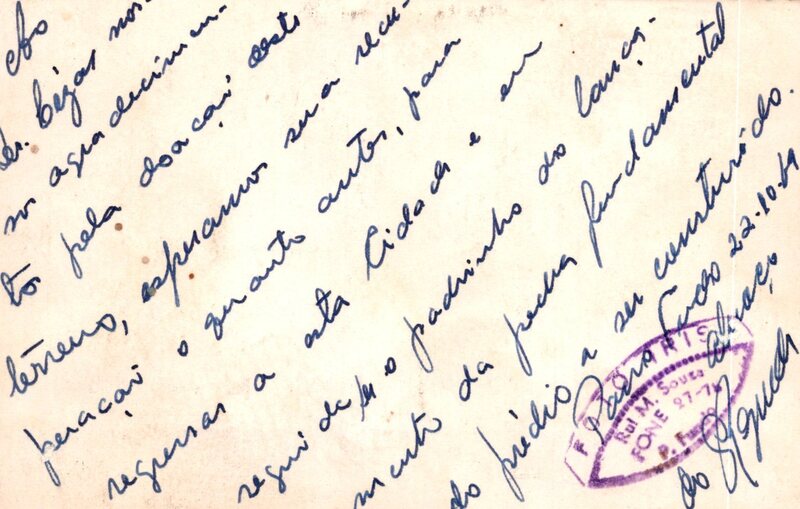 Dr. Cézar nos-
so agradecimen-
to pela doação deste
terreno, esperamos sua recu-
peração o quanto antes, para
regressar a esta Cidade e em
seguida o padrinho do lança-
mento da pedra fundamental
do prédio a ser construído.
Passo Fundo 22.10.69
Abraço
do
FOTO
Rui M. Souza
FONE 27-7